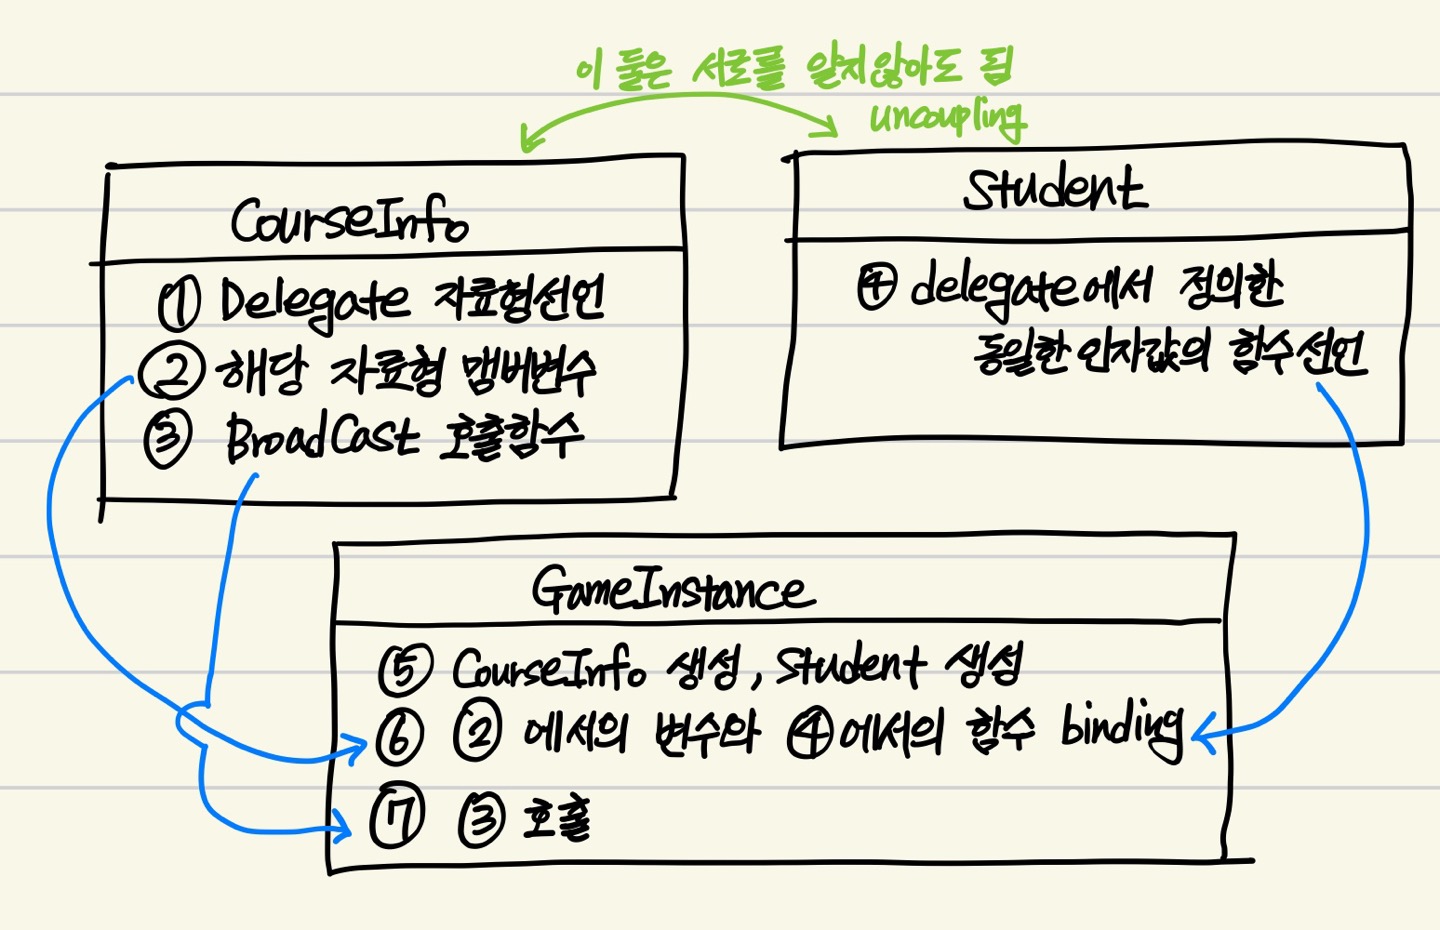 이 둘은 서로를 알지않아도 됨
uncoupling
CourseInfo
① Delegate 자료형선언
② 해당 자료형 맴버변수
③ BroadCast 호출함수
Student
④ delegate에서 정의한
동일한 인자값의 함수선언
GameInstance
⑤ CourseInfo 생성, Student 생성
⑥ ② 에서의 변수와 ④에서의 함수 binding
⑦ ③ 호출